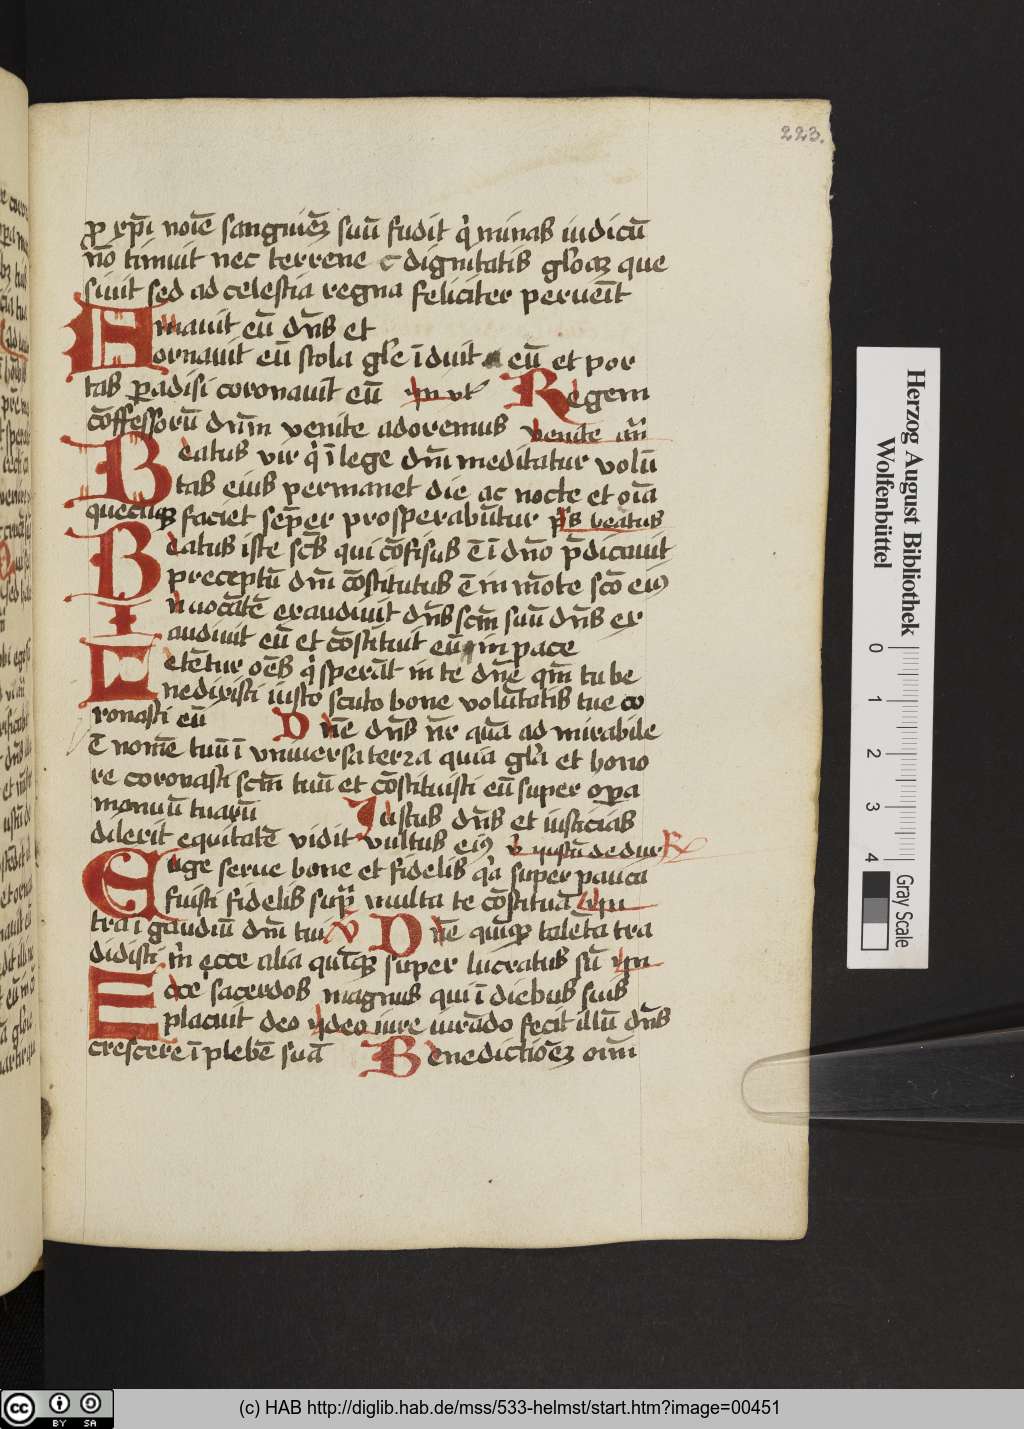 223.
ꝓ xp̄i noīe sanguiēꝫ suū fudit q̇ minas iudicū
nō timuit nec terrene c dignitatis gl̓oaꝫ que
siuit sed ad celestia regna feliciter peruēit
Amauit eū dn̄s et
ornauit eū stola gl̓e ī duit eū et por
tas ꝑadisi coronauit eū Regem
cōffessorū dn̄m venite adoremus venite
Beatus vir q̇ ī lege dn̄i meditatur volū
tas eius permanet die ac nocte et oīa
quecūqꝫ faciet semꝑ prosperabūtur p̄s beatus
Beatus iste sc̄s qui cōfisus ē ī dn̄o p̄dicauit
preceptū dn̄i cōstitutus ē in mōte scō eiꝰ
Inuocātē exaudiuit dn̄s scm̄ suū dn̄s ex
audiuit eū et cōstituit eū in pace
Letētur oēs q̇ sperāt in te dn̄e qm̄ tu be
nedixisti iusto scuto bone volūtatis tue co
ronasti eū Dn̄e dn̄s nr̄ quā ad mirabile
ē nomē tuū ī vniuersa terra quia gl̓a et hono
re coronasti scm̄ tuū et cōstituisti eū super oꝑa
manuū tuarū Iustus dn̄s et iusticias
dilexit equitatē vidit vultus eiꝰ
Euge serue bone et fidelis q̓a super pauca
fuisti fidelis supͣ multa te cōstituā
tra ī gaudiū dn̄i tui V Dn̄e quīqꝫ talēta tra
didisti m̓ ecce alia quīqꝫ super lucratus sū
Ecce sacerdos magnus qui ī diebus suis
placuit deo ideo iure iurādo fecit illū dn̄s
crescere ī plebē suā Benedictiōeꝫ oīm
Herzog August Bibliothek
Wolfenbüttel
0 1 2 3 4
Gray Scale
cc BY SA
(c) HAB http://diglib.hab.de/mss/533-helmst/start.htm?image=00451